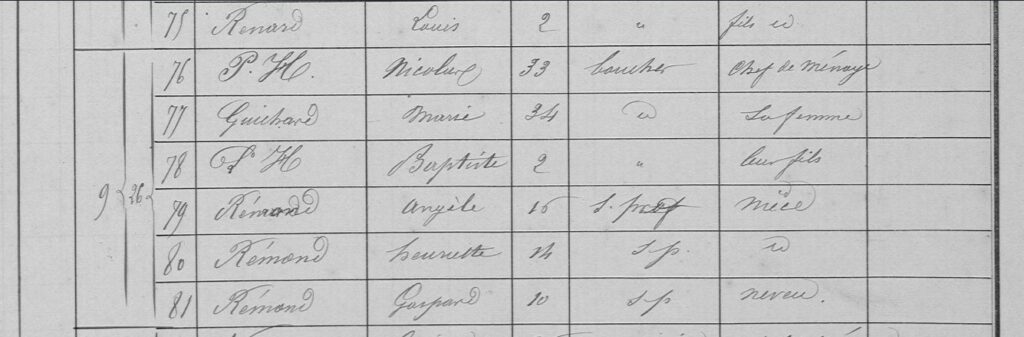 75 Renard Louis 2 " fils id
76 P. H. Nicolas 33 boucher Chef de Ménage
77 Guichard Marie 34 id Sa femme
78 P. H Baptiste 2 " leur fils
9 26 79 Rémond Angèle 16 s. prof nièce
80 Rémond henriette 14 s p. id
81 Rémond Gaspard 10 s p neveu.